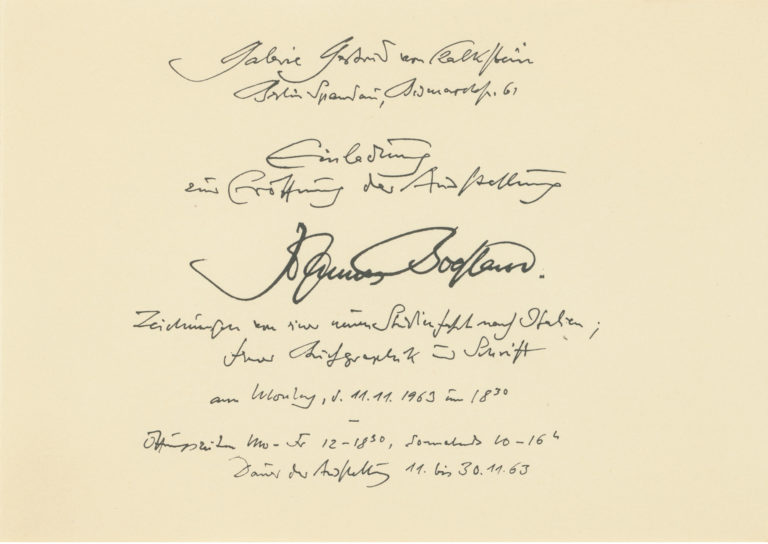 Galerie Gertrud von Kalkstein
Berlin Spandau, Bismarckstr. 61
Einladung
zur Eröffnung der Ausstellung
Johannes Boehland.
Zeichnungen von einer neuen Studienfahrt nach Italien;
ferner Buchgraphik u Schrift
am Montag, d. 11.11.1963 um 18 30
–
Öffnungszeiten Mo - Fr 12-18 30, Sonnabends 10-16 h
Dauer der Ausstellung 11. bis 30.11.63